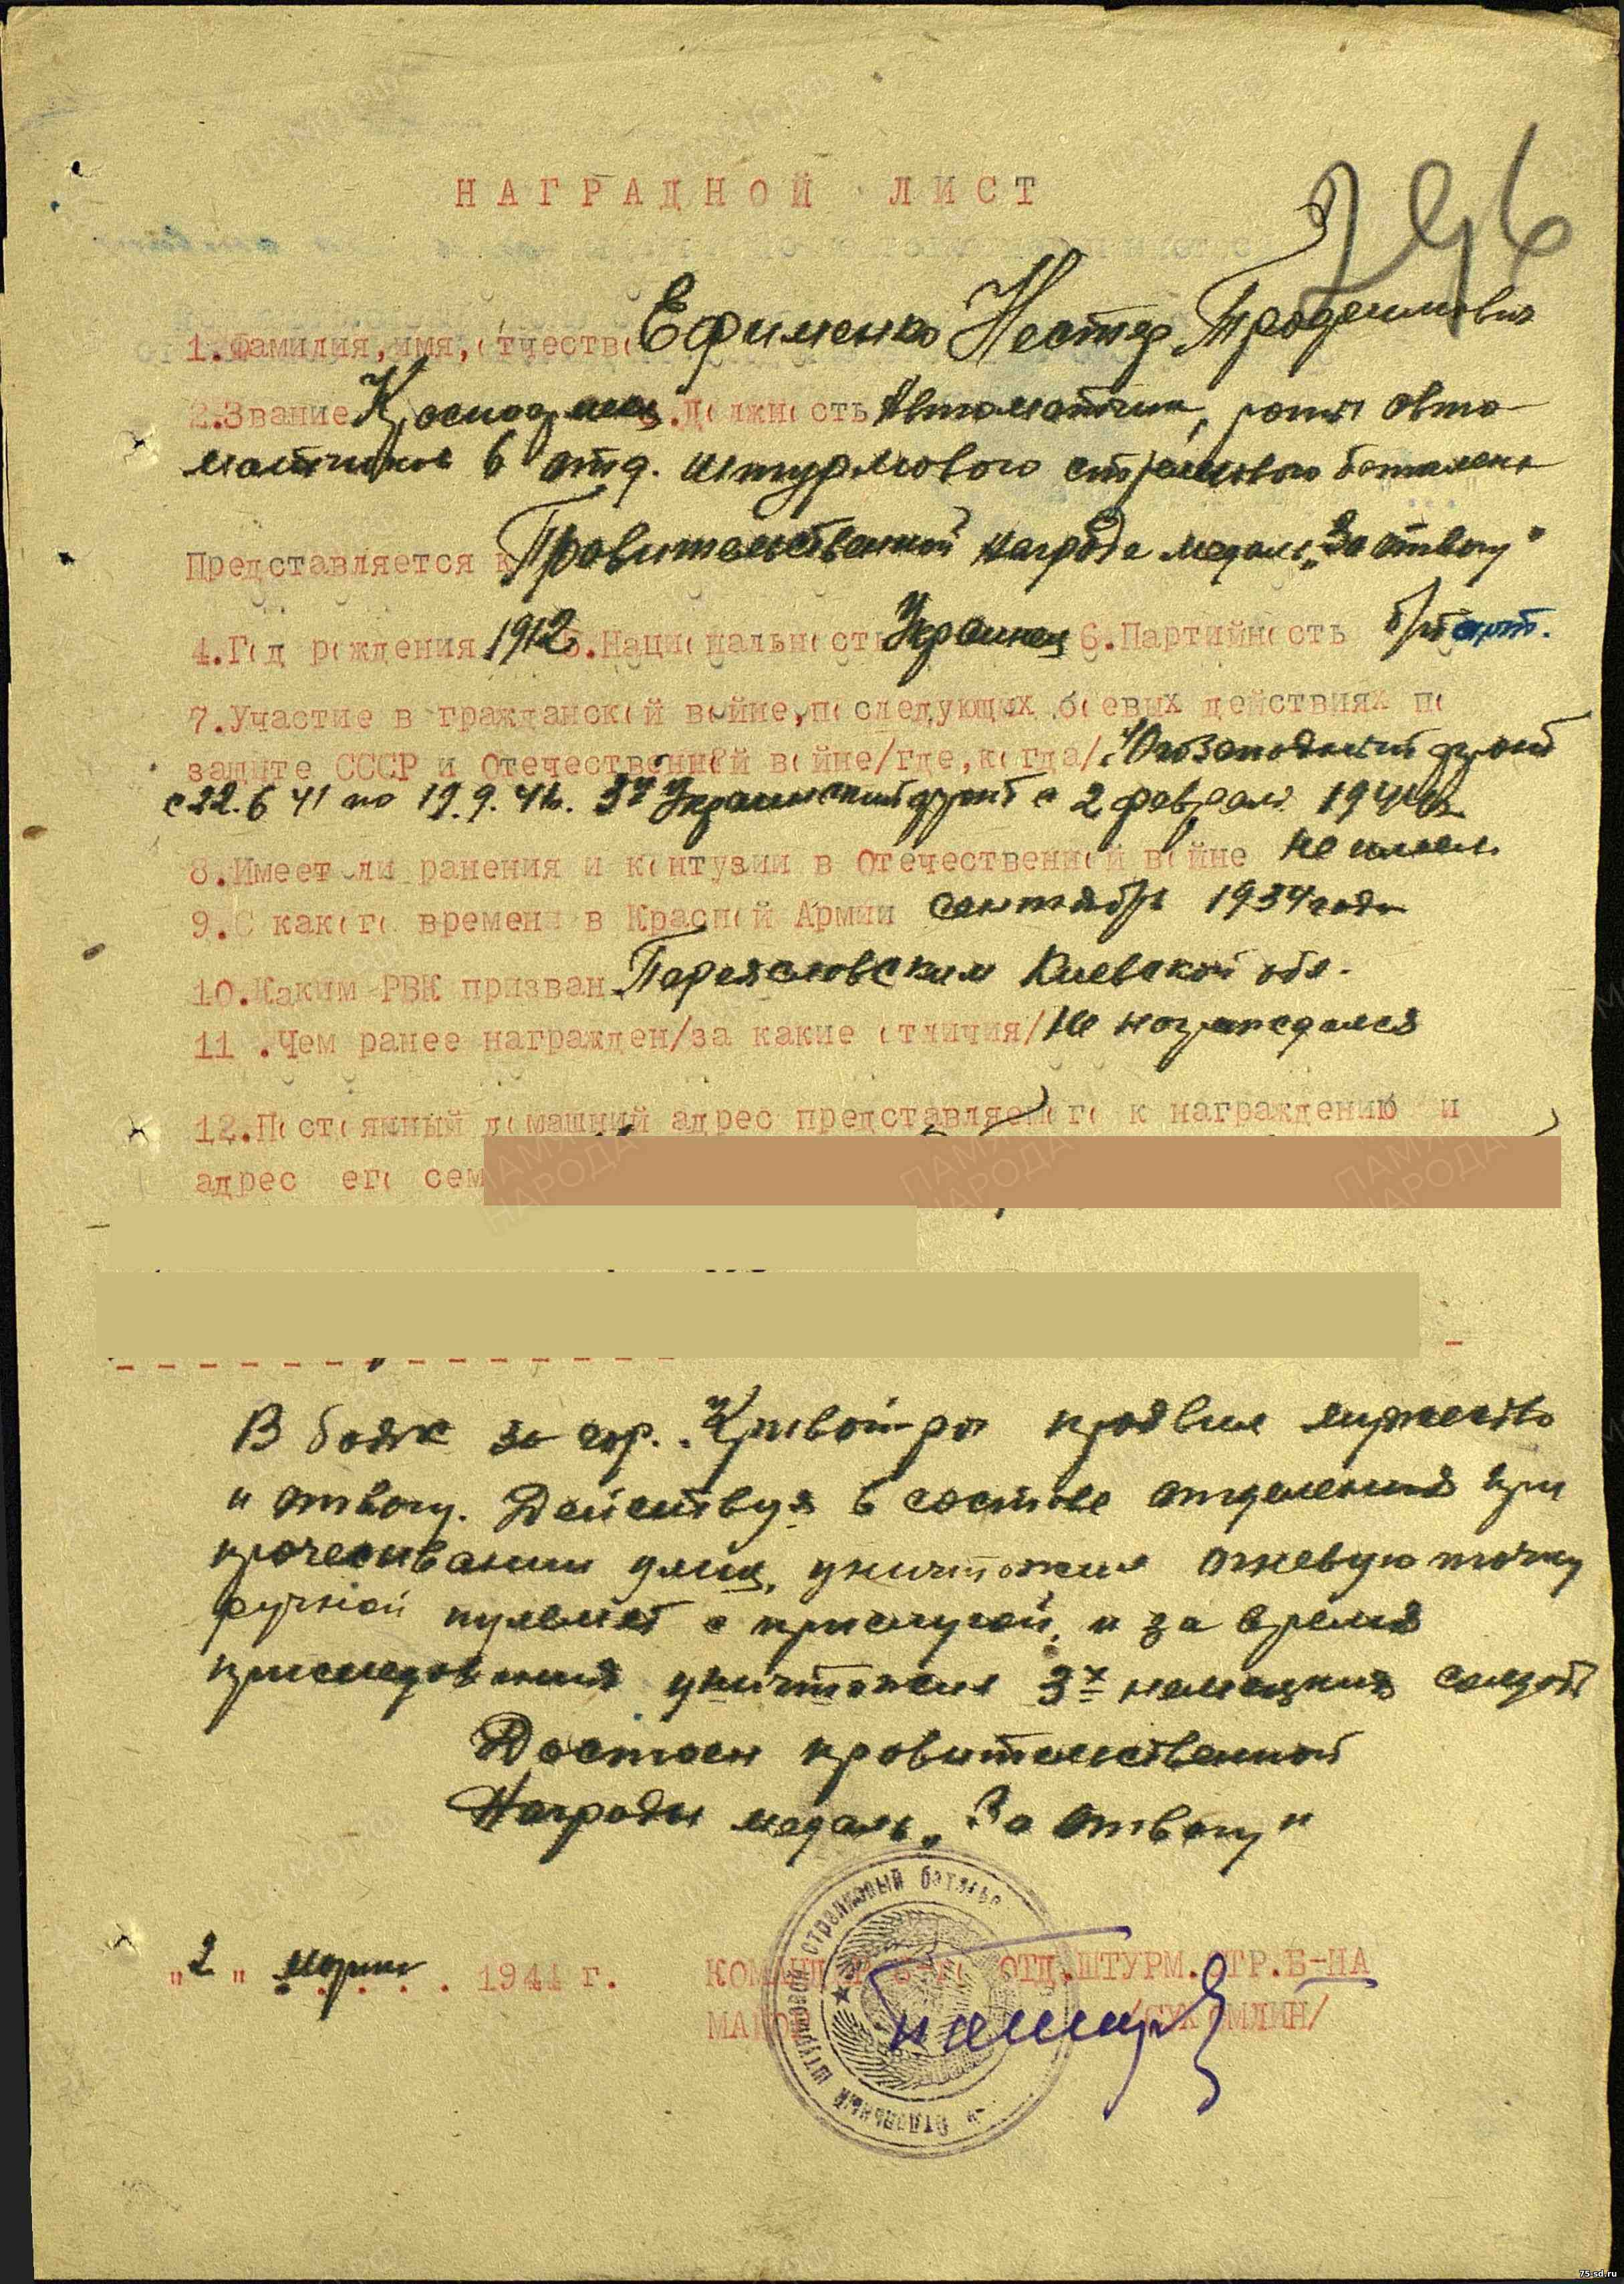 296
НАГРАДНОЙ ЛИСТ
1.Фамилия,имя,отчество Ефименко Нестер Трофимович
2.Звание Красноармеец 3.Должность Автоматчик, роты авто-
матчиков 6 отд. штурмового стрелкового батальона
Представляется к Правительственной награде медаль „За отвагу"
4.Год рождения 1912 5.Национальность Украинец 6.Партийность б/парт.
7.Участие в гражданской войне,последующих боевых действиях по
защите СССР и Отечественной войне/где,когда/. Югозападный фронт
с 22.6 41 по 19.9.41г. 3й Украинский фронт с 2 февраля 1944г.
8.Имеет ли ранения и контузии в Отечественной войне не имел.
9.С какого времени в Красной Армии сентябрь 1934 года
10.Каким РВК призван Переяславским Киевской обл.
11 .Чем ранее награжден/за какие отличия/ Не награждался
12.Постоянный домашний адрес представляемого к награждению и
адрес его сем
В боях за гор. Кривой-рог проявил мужество
и отвагу. Действуя в составе отделения при
прочесывании улиц, уничтожил огневую точку
ручной пулемет с прислугой, и за время
приследования уничтожил 3х немецких солдат
Достоен правительственной
Награды медаль „За отвагу"
"2" марта . 1944 г.
КОМАНДИР ОТД.ШТУРМ.СТР.Б-НА
МАЙОР /СУХОМЛИН/
отдельный штурмовой стрелковый батальон
ПАМЯТЬ НАРОДА
75-sd.ru